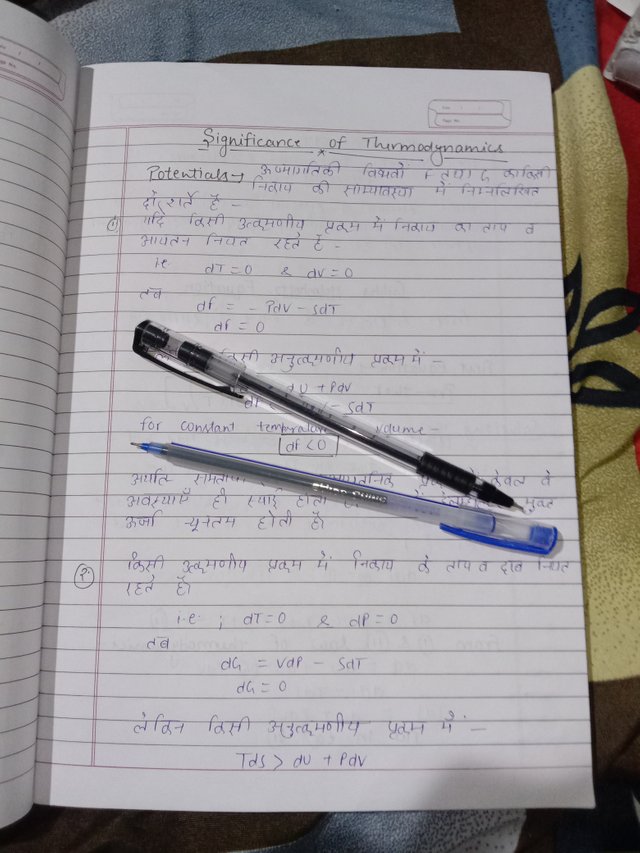 Significance of Thermodynamics
Potentials → ऊष्मागतिकी विभवों F तथा G का किसी
निकाय की साम्यावस्था में निम्नलिखित
दो शर्ते हैं -
① यदि किसी उत्क्रमणीय प्रक्रम में निकाय का ताप व
आयतन नियत रहते हैं -
i.e. dT = 0 & dV = 0
तब dF = - PdV - SdT
dF = 0
किसी अनुत्क्रमणीय प्रक्रम में -
dU + PdV
- SdT
for constant
dF < 0
अर्थात
अवस्थाएँ ही स्थाई होती मुक्त
ऊर्जा न्यूनतम होती है।
② किसी उत्क्रमणीय प्रक्रम में निकाय के ताप व दाब नियत
रहते हैं।
i.e. ; dT = 0 & dP = 0
तब
dG = VdP - SdT
dG = 0
लेकिन किसी अनुत्क्रमणीय प्रक्रम में -
Tds > dU + PdV